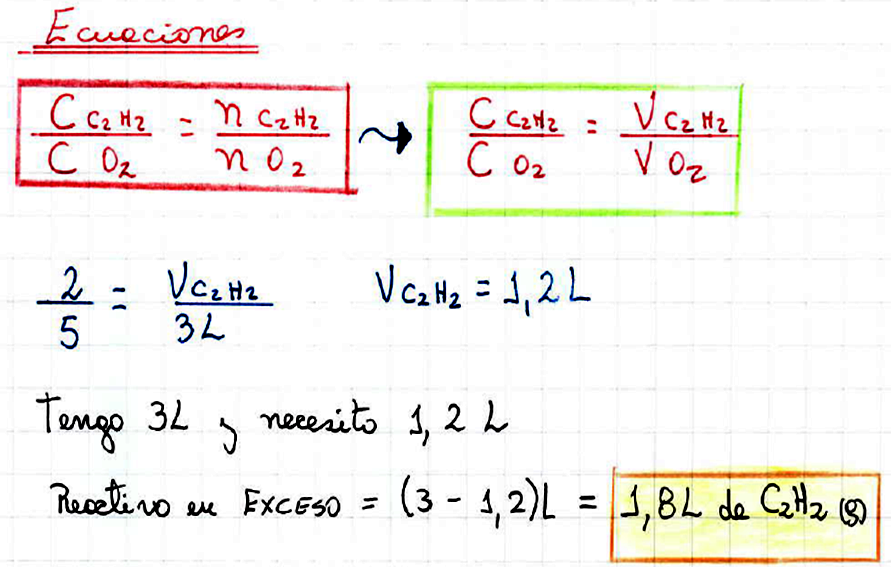 Ecuaciones
C C₂H₂ / C O₂ = n C₂H₂ / n O₂ ⇝ C C₂H₂ / C O₂ = V C₂H₂ / V O₂
2 / 5 = V C₂H₂ / 3L V C₂H₂ = 1,2 L
Tengo 3L y necesito 1,2 L
Reactivo en EXCESO = (3 - 1,2)L = 1,8L de C₂H₂ (g)